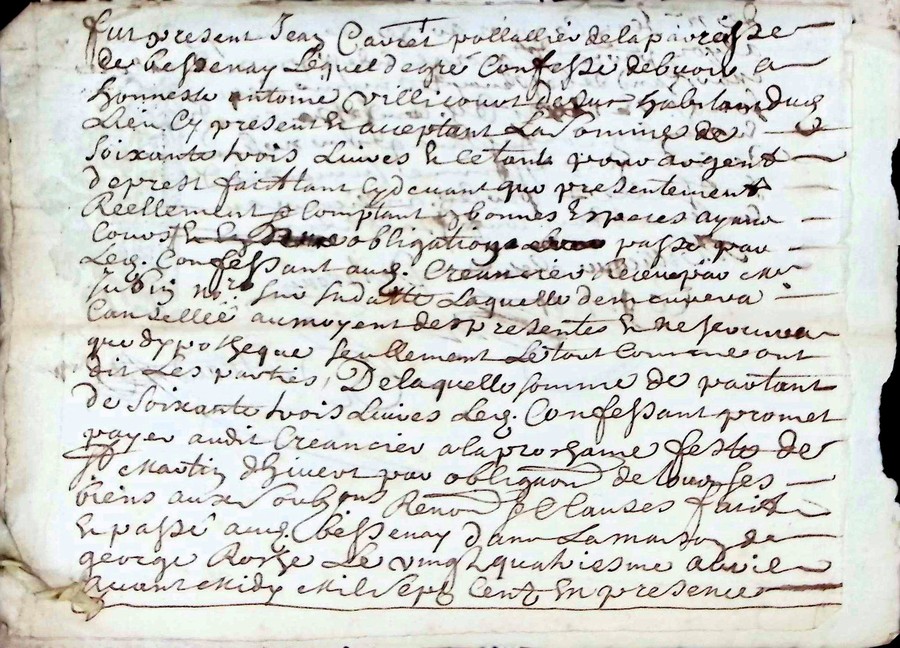 fut present Jean Cavret vollallier de la paroisse
de bessenay Lequel de gré Confesse debvoir a
honneste antoine villicourt dud. habitant dud.
Lieu Cy present & acceptant La Somme de
Soixante trois Livres & ce tant pour argent
de prest faict tant Cydevant que presentement
Reellement & Comptant bonnes Especes ayant
Cours obligation passé par
Leq. Confessant aud. Creancier receue par Me
nore sur sa datte Laquelle demeurera
Cancellée au moyent des presentes & ne servira
que dypotheque Seullement Le tout Comme ont
dit Les parties, De laquelle somme de partant
de Soixante trois Livres Leq. Confessant promet
payer audit Creancier a la prochaine feste de
St Martin dhivert par obligaon de tous ses
biens aux Soubzons Renon & Clauses faict
& passé aud. bessenay dans La maison de
george Le vingt quatriesme avril
avant Midy Mil Sept Cent En presence